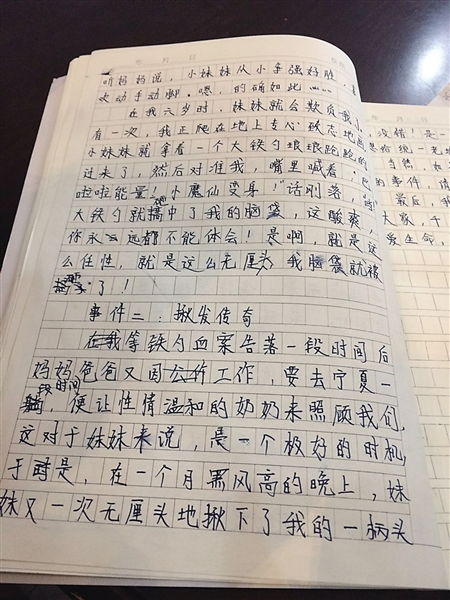 听妈妈说，小妹妹从小争强好胜，喜
欢动手动脚。嗯，的确如此……
在我六岁时，妹妹就会欺负我
有一次，我正爬在地上专心致志地画
小妹妹就拿着一个大铁勺踉踉跄跄的
过来了，然后对准我，嘴里喊着，巴
啦啦能量！小魔仙变身！"话刚落，
大铁勺就搞中了我的脑袋，这酸爽，
你永远都不能体会！是啊，就是这
么任性，就是这么无厘头，我脑袋就被
了！
事件二：揪发传奇
在我等铁勺血案告落一段时间后
妈妈爸爸又因公幹工作，要去宁夏一
段时间，便让性情温和的奶奶来照顾我们，
这对于妹妹来说，是一个极好的时机，
于是，在一个月黑风高的晚上，妹
妹又一次无厘头地揪下了我的一柄头
没错！是一
最后，我
大家，千
爱生命，